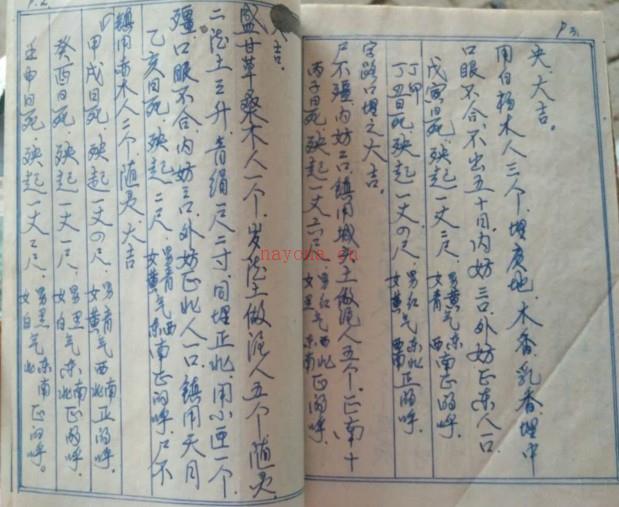 P.2
壬申日死,殃起一丈二尺,男黑气东南正的呼。
女白 西北
癸酉日死,殃起一丈一尺,男黑气东南正的呼。
女白 西北
甲戌日死,殃起一丈四尺,男青气西南正的呼,
女黄 西北
镇用杏木人二个随灵大吉
乙亥日死,殃起二尺,男青气西北正的呼,尸不
女黄 东南
疆口眼不合,内妨三口外妨正北人一口镇用天月
二德土三升,青绢一尺二寸,同埋正北,用小匣一个,
盛甘草桑木人一个,岁德土做泥人五个随灵
大吉。
P.3
丙子日死,殃起一丈六尺,男红气西北正的呼,
女黑 东南
尸不疆,内妨二口,镇用城土做泥人五个,正南十
字路口埋之大吉。
丁丑日死,殃起一丈四尺,男红气东北正的呼,
女黄 西南
戊寅日死,殃起一丈二尺,男黄气东北正的呼,
女青 西南
口眼不合,不出五十日内妨三口,外妨正东人一口
用白杨木人三个,埋庚地,木香,乳香,埋中
央,大吉。
nayona.cn